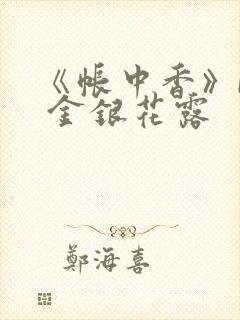 《帳中香》
金銀花露
鄭海喜